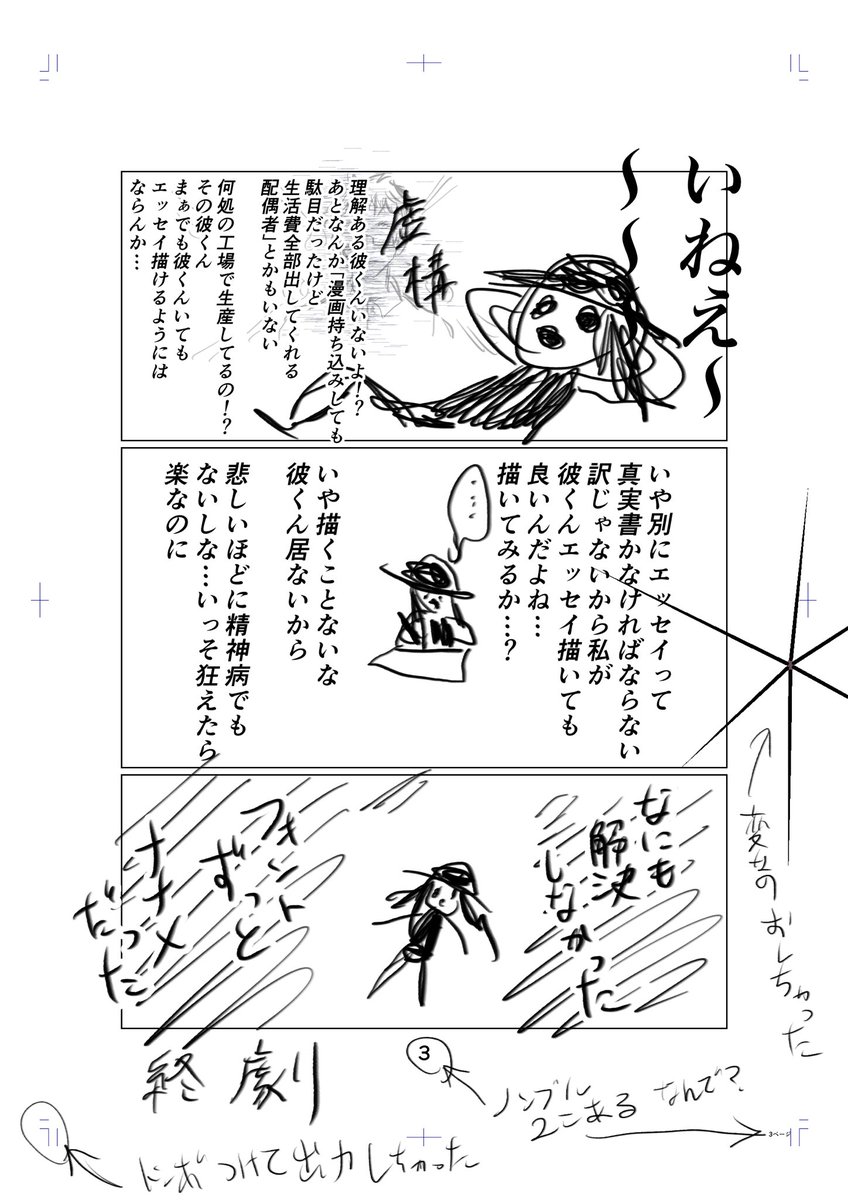 いねえ～
～～～
虚構
理解ある彼くんいないよ!?
あとなんか「漫画持ち込みしても
駄目だったけど
生活費全部出してくれる
配偶者」とかもいない
何処の工場で生産してるの!?
その彼くん
まぁでも彼くんいても
エッセイ描けるようには
ならんか…
いや別にエッセイって
真実書かなければならない
訳じゃないから私が
彼くんエッセイ描いても
良いんだよね…
描いてみるか…?
……
いや描くことないな
彼くん居ないから
悲しいほどに精神病でも
ないしな…いっそ狂えたら
楽なのに
なにも
解決
しなかった
フォント
ずっと
ナナメ
だった
終劇
3
ノンブル
2こある なんで?
3ページ
変なの おしちゃった
トンボ つけて出力しちゃった